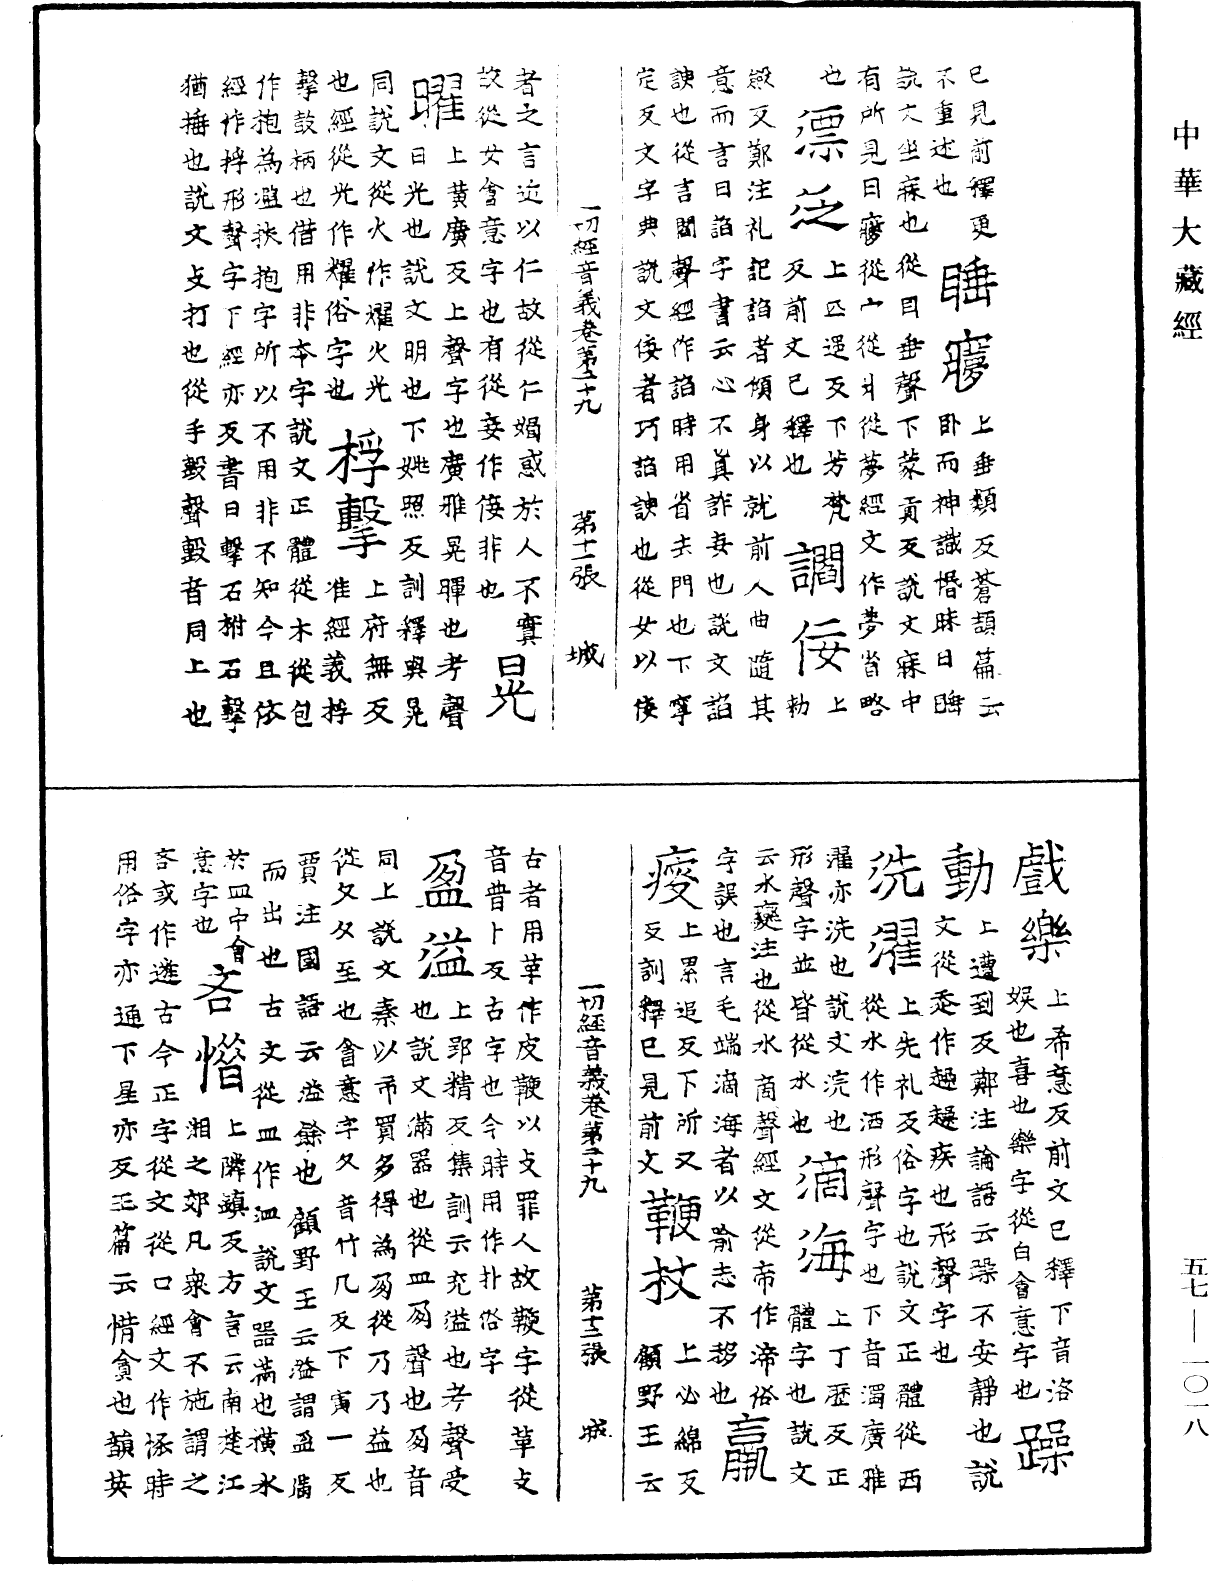 中華大藏經
已見前釋更
不重述也
睡寱
上垂類反蒼頡篇云
卧而神識惛昧曰睡
說文坐寐也從目垂聲下蒙貢反說文寐中
有所見曰寱從宀從爿從夢經文作夢省略
也
漂泛
上匹遥反下芳梵
反前文已釋也
讇佞
上
勑
斂反鄭注礼記諂者傾身以就前人曲隨其
意而言曰諂字書云心不真詐妄也說文諂
諛也從言閻聲經作諂時用省去門也下寧
定反文字典說文佞者巧諂諛也從女以佞
一切經音義卷第二十九 第十一張 城
者之言近以仁故從仁媚惑於人不實
故從女會意字也有從妾作佞非也
晃
曜
上黄廣反上聲字也廣雅晃暉也考聲
日光也說文明也下姚照反訓釋與晃
同說文從火作燿火光
也經從光作耀俗字也
桴擊
上府無反
准經義桴
擊鼓柄也借用非本字說文正體從木從包
作枹為濫抉抱字所以不用非不知今且依
經作桴形聲字下經亦反書曰擊石拊石擊
猶捶也說文攴打也從手毄聲毄音同上也
戲樂
上希意反前文已釋下音洛
娱也喜也樂字從白會意字也
躁
動
上遭到反鄭注論語云躁不安静也說
文從𡘲作趮趮疾也形聲字也
洗濯
上先礼反俗字也說文正體從西
從水作洒形聲字也下音濁廣雅
濯亦洗也說文浣也
形聲字並皆從水也
滴海
上丁歷反正
體字也說文
云水欒注也從水啇聲經文從帝作渧俗
字誤也言毛端滴海者以喻志不移也
羸
㾭
上累追反下所又
反訓釋已見前文
鞭杖
上必綿反
顧野王云
一切經音義卷第二十九 第十二張 城
古者用革作皮鞭以攴罪人故鞭字從革攴
音普卜反古字也今時用作扑俗字
盈溢
上郢精反集訓云充溢也考聲受
也說文滿器也從皿夃聲也夃音
同上說文秦以市買多得為夃從乃乃益也
從夂夂至也會意字夂音竹几反下寅一反
賈注國語云溢餘也顧野王云溢謂盈滿
而出也古文從皿作𥁑說文器滿也横水
於皿中會
意字也
吝惜
上隣鎮反方言云南楚江
湘之郊凡衆會不施謂之
吝或作遴古今正字從文從口經文作悋時
用俗字亦通下星亦反玉篇云惜貪也韻英
五七—一〇一八